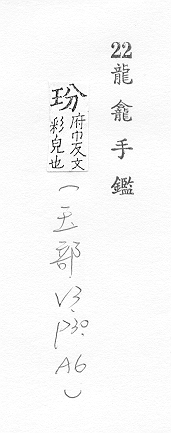 22龍龕手鑑
玢府巾反文
彩皃也
(玉部.V3.P30.A6)